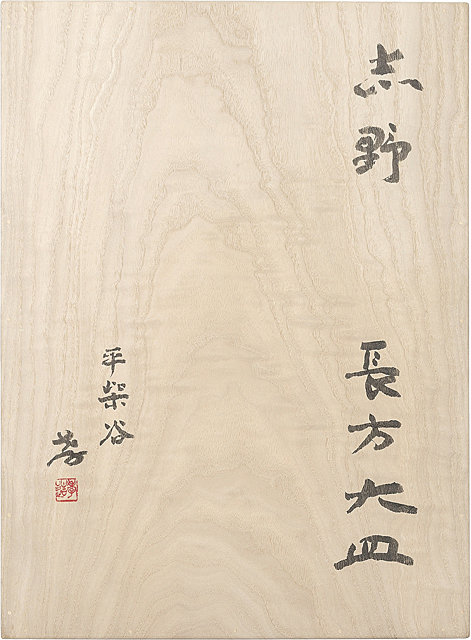 志野
長方大皿
平柴谷
孝